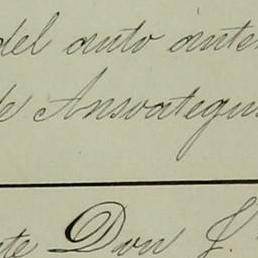 del auto ante
de Ansoategui
te Don J.